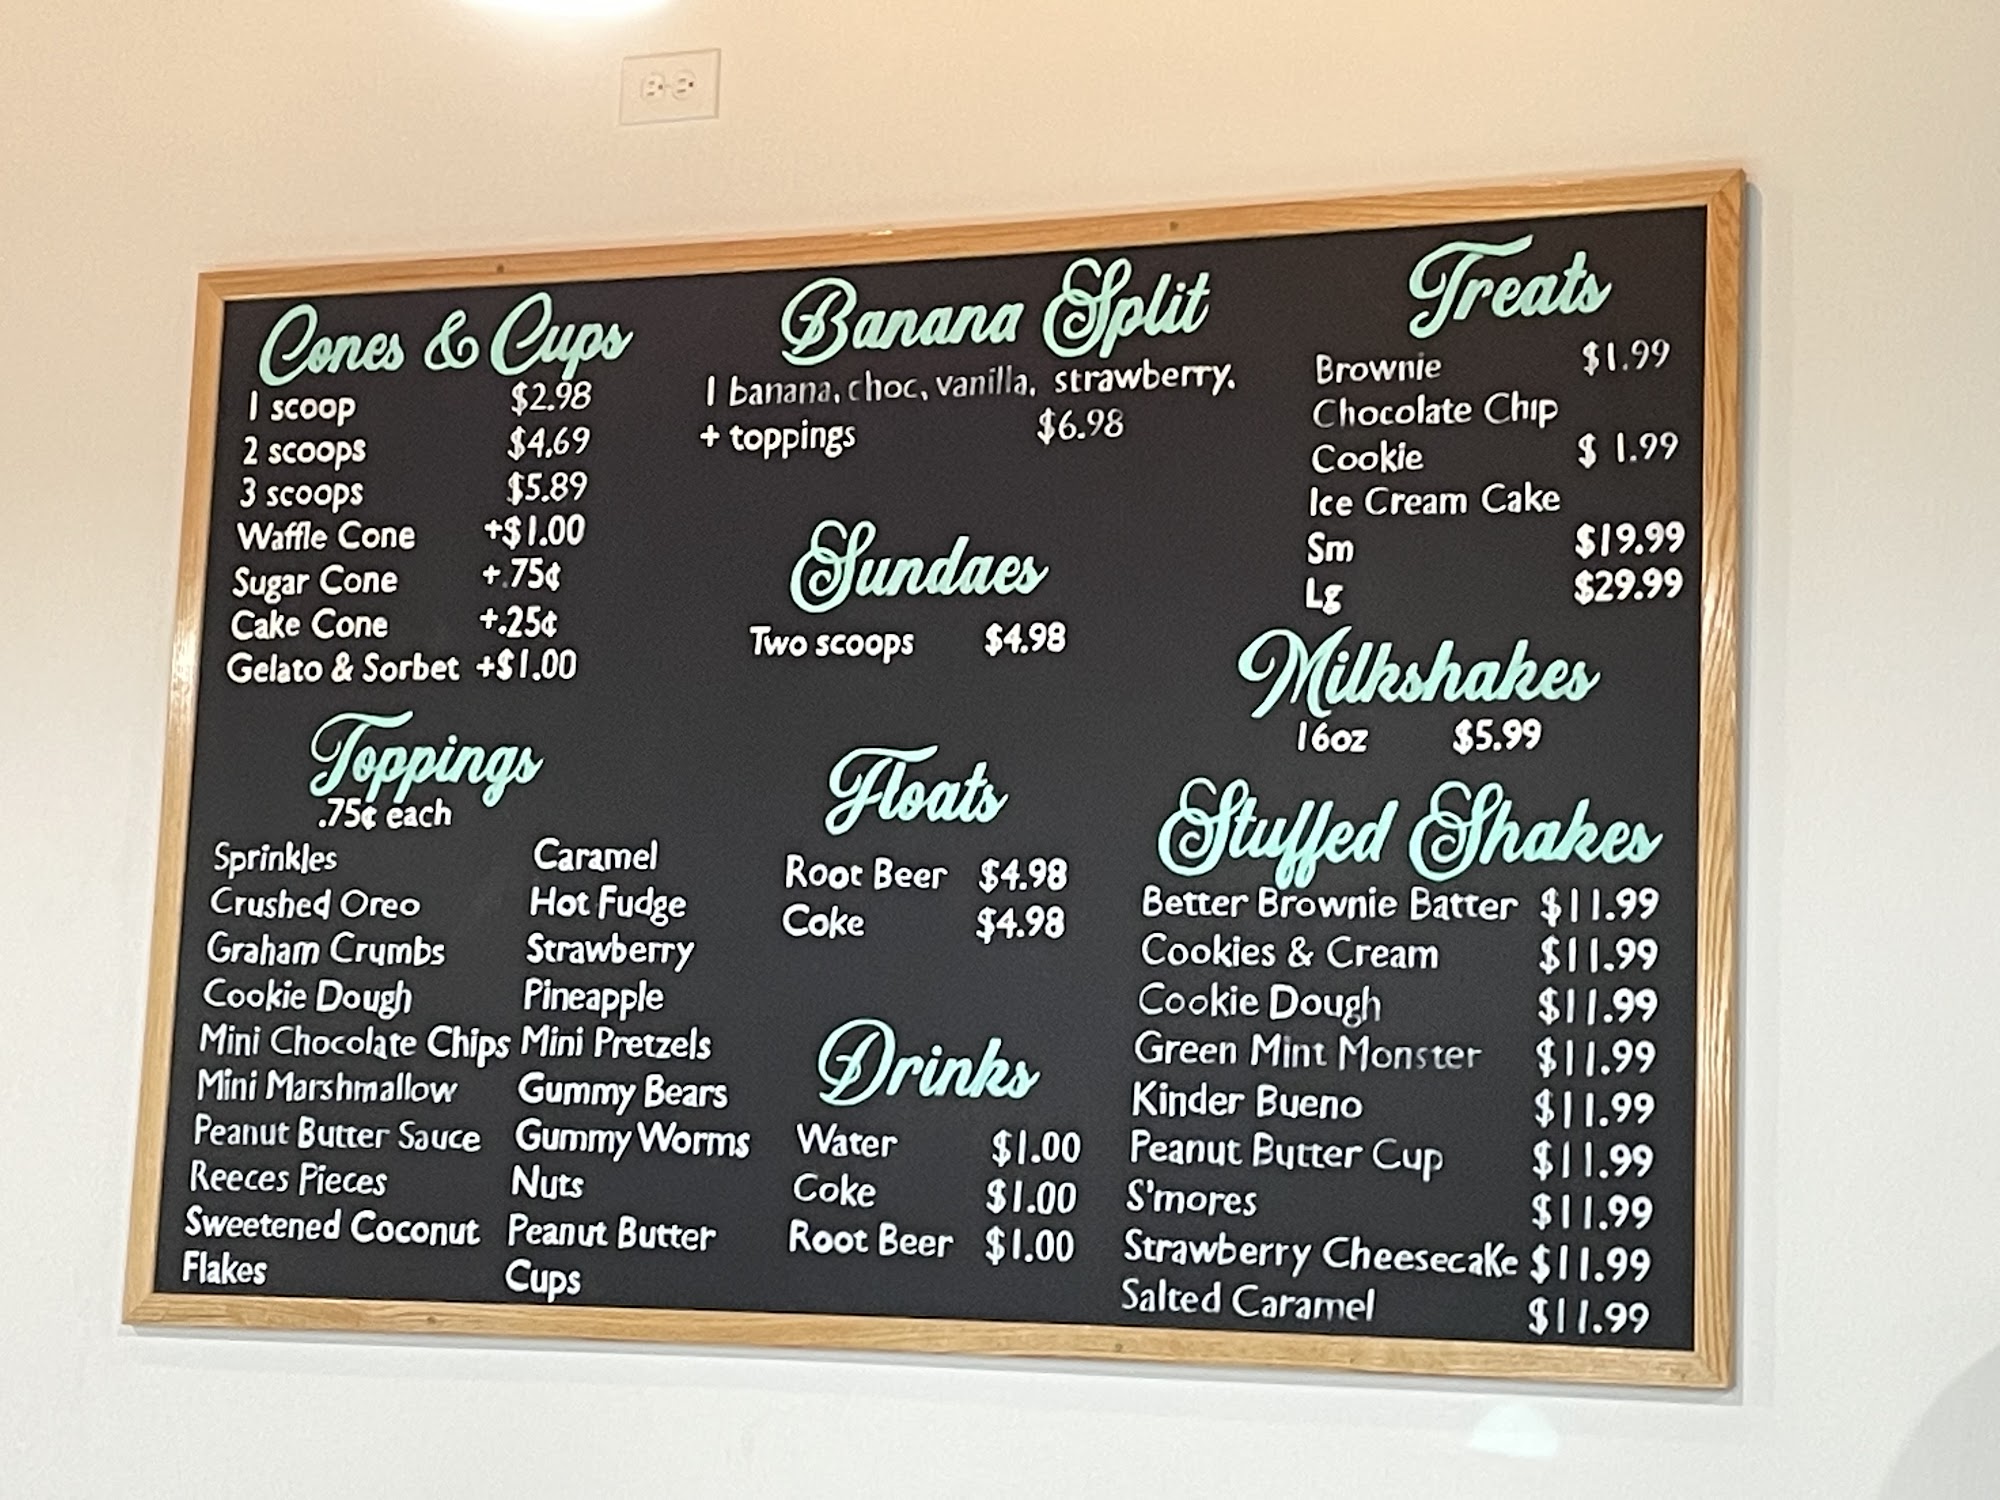 Cones & Cups
1 scoop $2.98
2 scoops $4.69
3 scoops $5.89
Waffle Cone +$1.00
Sugar Cone +.75¢
Cake Cone +.25¢
Gelato & Sorbet +$1.00
Toppings
.75¢ each
Sprinkles
Crushed Oreo
Graham Crumbs
Cookie Dough
Mini Chocolate Chips
Mini Marshmallow
Peanut Butter Sauce
Reeces Pieces
Sweetened Coconut
Flakes
Caramel
Hot Fudge
Strawberry
Pineapple
Mini Pretzels
Gummy Bears
Gummy Worms
Nuts
Peanut Butter
Cups
Banana Split
1 banana, choc, vanilla, strawberry,
+ toppings $6.98
Sundaes
Two scoops $4.98
Floats
Root Beer $4.98
Coke $4.98
Drinks
Water $1.00
Coke $1.00
Root Beer $1.00
Treats
Brownie $1.99
Chocolate Chip
Cookie $ 1.99
Ice Cream Cake
Sm $19.99
Lg $29.99
Milkshakes
16oz $5.99
Stuffed Shakes
Better Brownie Batter $11.99
Cookies & Cream $11.99
Cookie Dough $11.99
Green Mint Monster $11.99
Kinder Bueno $11.99
Peanut Butter Cup $11.99
S'mores $11.99
Strawberry Cheesecake $11.99
Salted Caramel $11.99